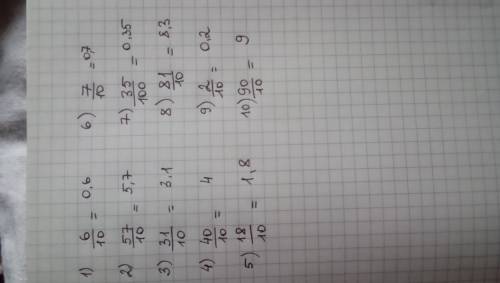 1) 6/10 = 0,6
2) 57/10 = 5,7
3) 31/10 = 3.1
4) 40/10 = 4
5) 18/10 = 1,8
6) 7/10 = 0,7
7) 35/100 = 0,35
8) 81/10 = 8,3
9) 2/10 = 0.2
10) 90/10 = 9